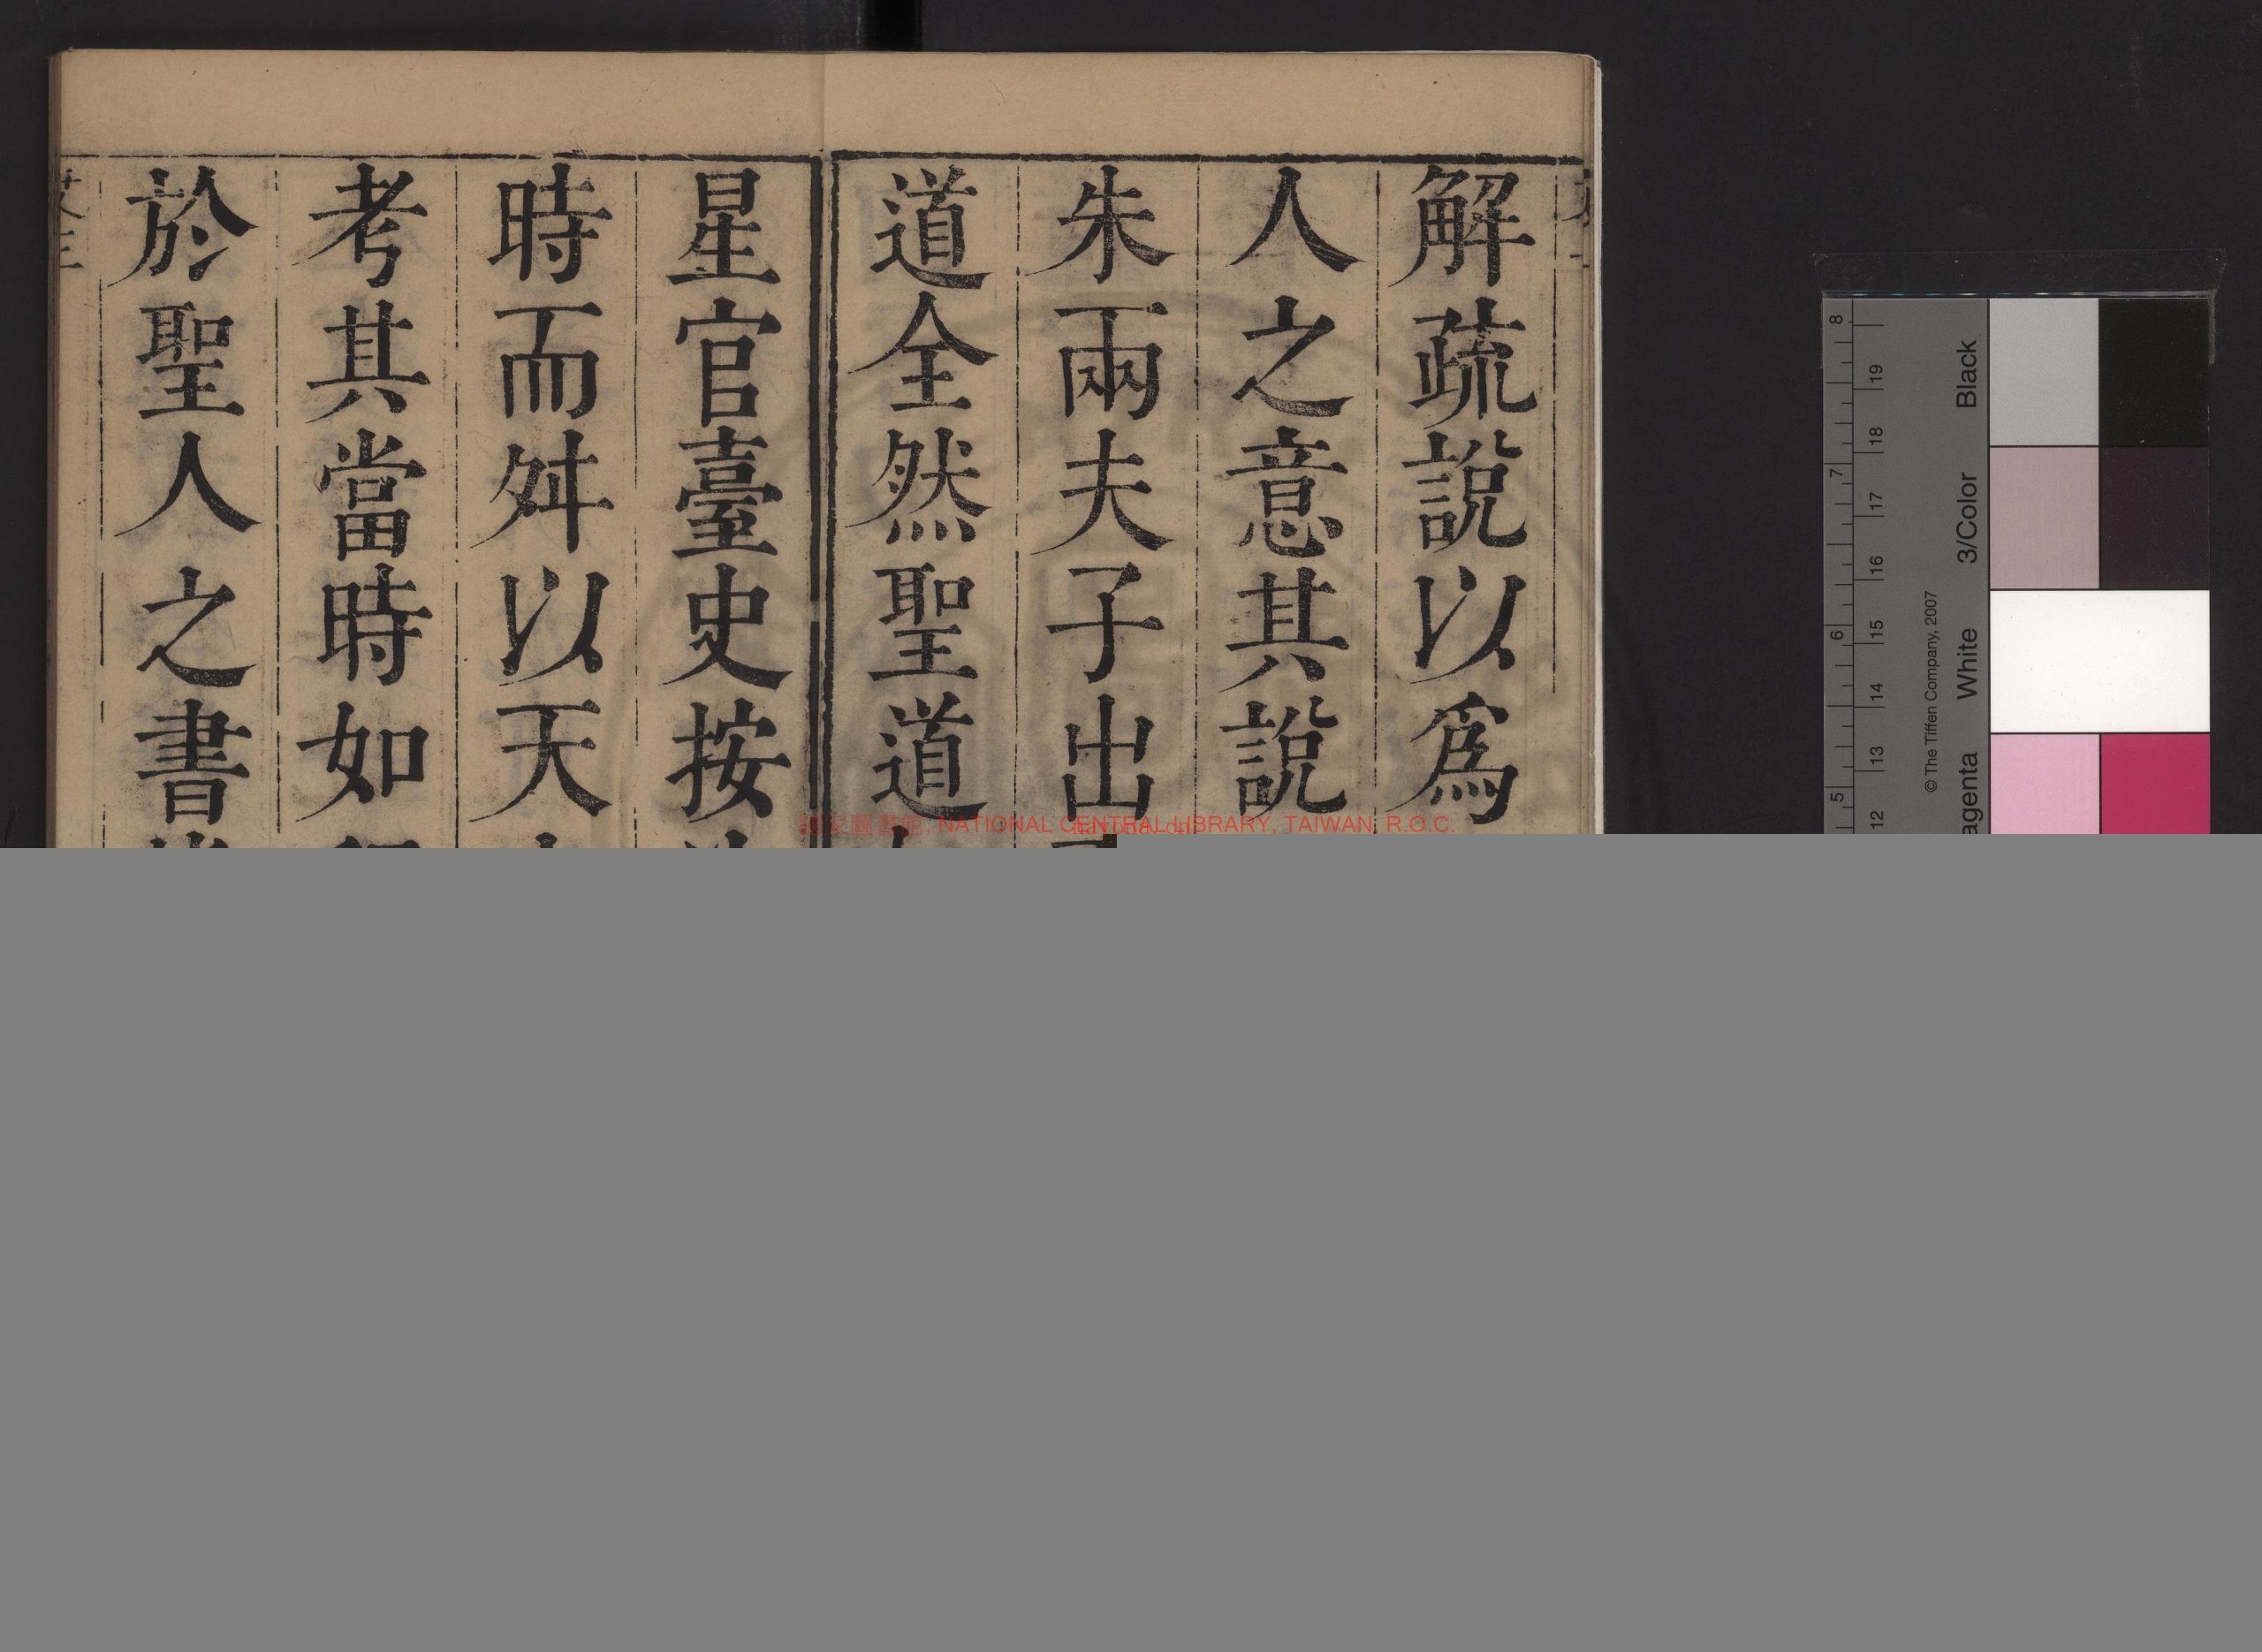 解疏說以爲
人之意其說
朱兩夫子出
道全然聖道
星官臺史按
時而舛以天
考其當時如
於聖人之書
國家圖書館, NATIONAL CENTRAL LIBRARY, TAIWAN, R.O.C.
8 7 6 5
19 18 17 16 15 14 13 12
© The Tiffen Company, 2007
Black
3/Color
White
agenta